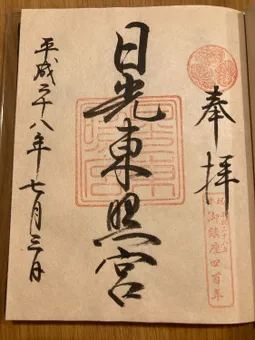 奉拝
御鎮座四百年
日光東照宮
平成二十八年七月三日